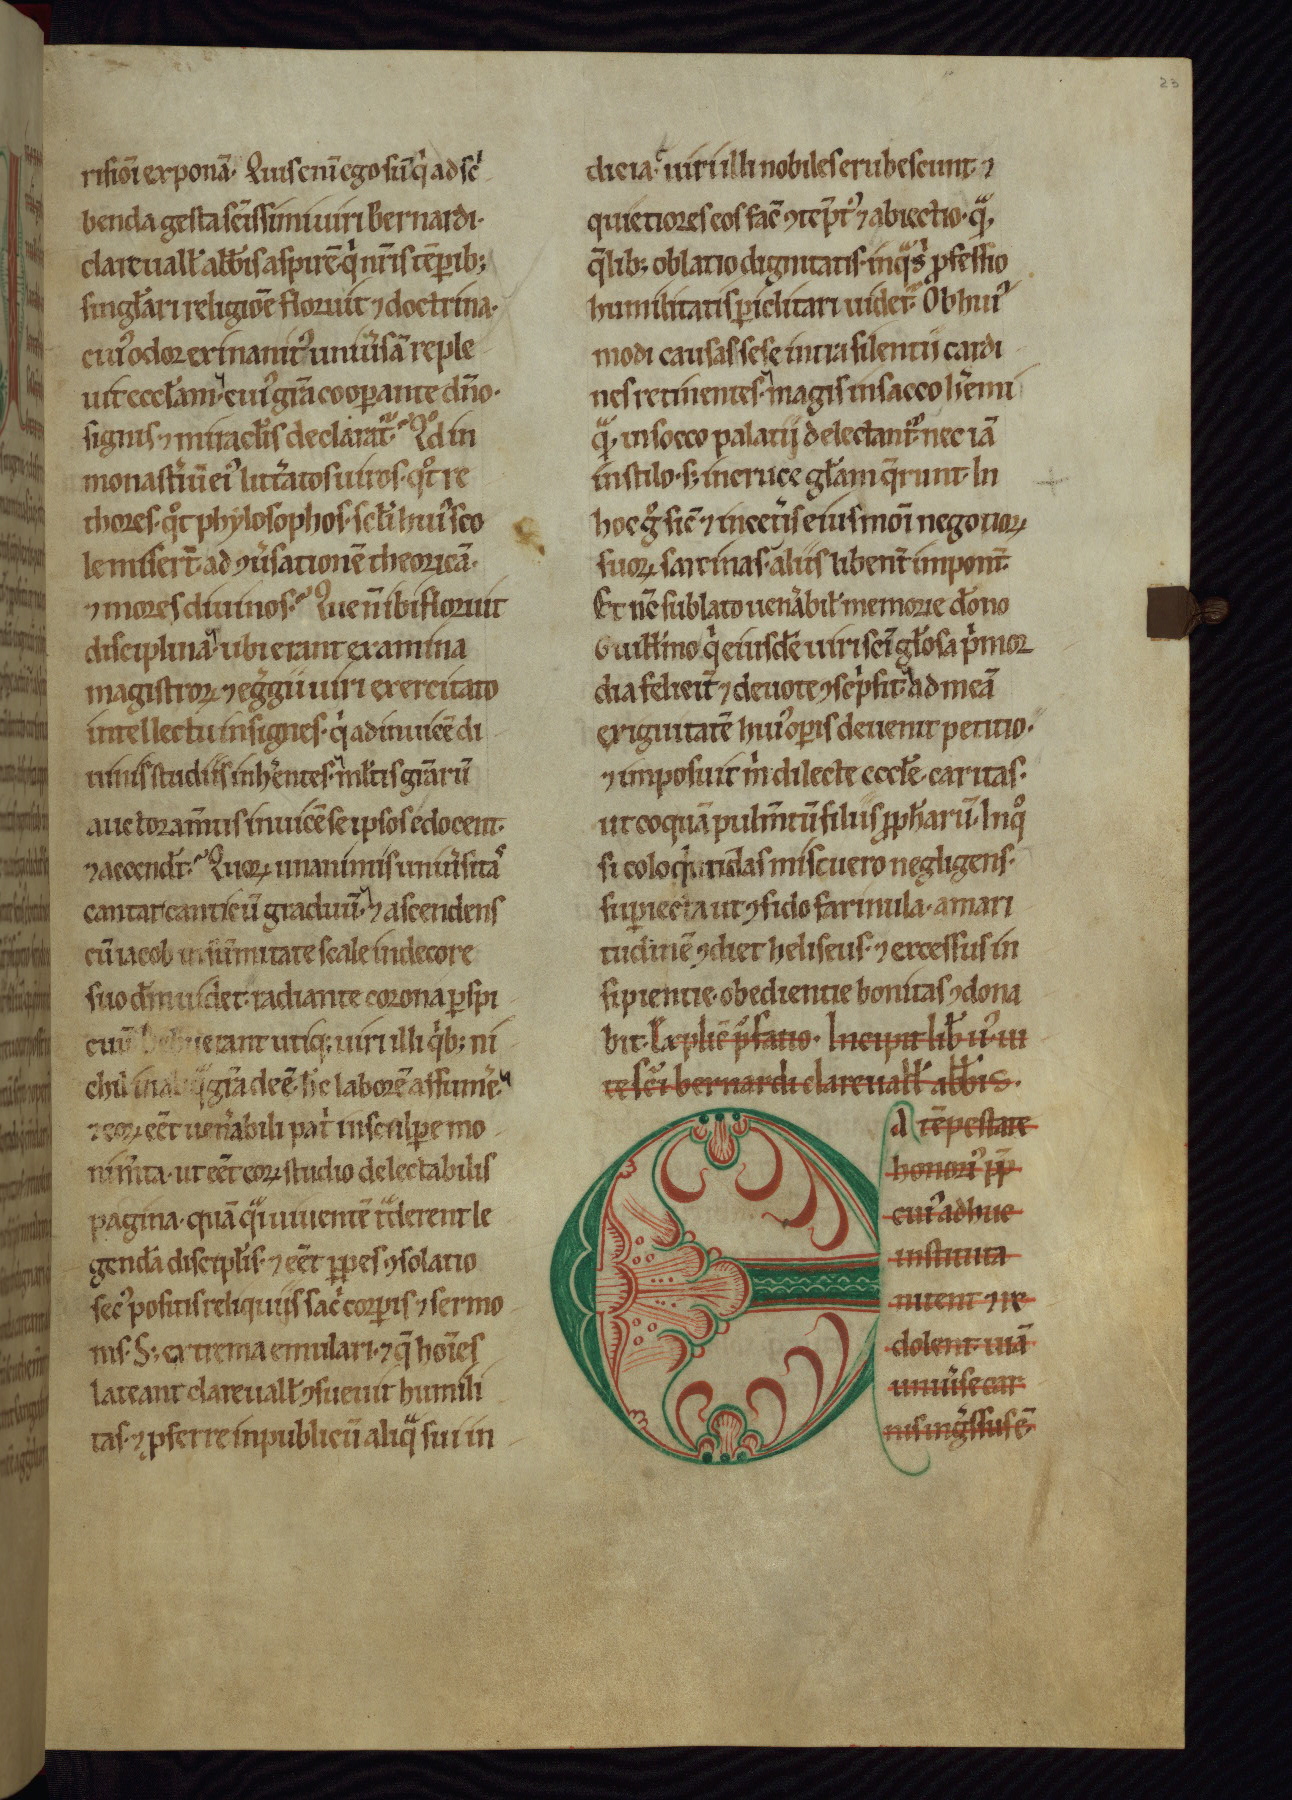 23
risiōi exponā· Quis eni ego sū q̍ ad sc̍
benda gesta sc̄issimi uiri Bernardi·
clareuall̄ abb̄is aspirē· q̍ nr̄is tēporib;
singl̄ari religiōe floruit ⁊ doctrina·
cui᷒ odor exinanit᷒ uniūsā reple
uit eccl̄am· cui᷒ grā̄ coopante dn̄o·
signis ⁊ miracl̄is declarat᷒· Qd in
monast̄iū ei᷒ litt̄atos uiros· qͦt re
thores· qͦt phylosophos· scl̄i hui᷒ sco
le miser̄t ad ꝯūsationē theoricā·
⁊ mores diuinos· Que n̄ ibi floruit
disciplina· ubi erant examina
magistroꝝ ⁊ egg̍ii uiri exercitato
intellectu insignes· q̍ adinuicē di
uinis studiis inh̄entes· ml̄tis grāꝝ
auctoram̄tis inuicē se ipsos edocent·
⁊ accendt̄· Quoꝝ unanimis uniūsitas
cantat canticū graduū· ⁊ ascendens
cū iacob in sūmitate scale in decore
suo dm̄ uidet· radiante corona p̱spi
cuū debuerant utiq; uiri illi q̍b; ni
chil in aliqͣ grā deē· hc̄ laborē assumē·
⁊ eoꝝ eēt uen̄abili pat̍ insculp̱e mo
nim̄ta· ut eēt eoꝝ studio delectabilis
pagina· quā qͣ uiuentē tͣderent le
genda discipl̄is· ⁊ eēt ꝑpes ꝯsolatio
sec᷒ positis reliquiis sac̍ corꝑis ⁊ sermo
nis· S; extrema emulari· ⁊ q̄ hoīes
lateant clareuall̄ ꝯsueuit humili
tas· ⁊ pferre in publicū aliqͣ sui in
dicia· uiri illi nobiles erubescunt ⁊
quietiores eos facͥ ꝯtēpt᷒ ⁊ abiectio· qͣ,
q̄lib; oblatio dignitatis· in qͣ s̍ ꝓfessio
humilitatis ꝑiclitari uidet᷒· Ob hui᷒
modi causas sese intra silentii cardi
nes retinentes· magis in sacco hͤemi
qͣ, in socco palatii delectant᷒· nec iā
in stilo· s; in cruce gl̄am q̄runt· In
hoc gͦ sic̄ ⁊ in cet̄is eius moī negotioꝝ
suoꝝ sarcinas· aliis libent̄ imponūt·
Et nē sublato uen̄abil̄ memorie dōno
Guill̄mo q̍ eiusdē uiri sc̄i gl̄osa p̍mor
dia felicit̄ ⁊ deuote ꝯsc̍psit· ad meā
exiguitatē hui᷒ opis deuenit petitio·
⁊ imposuit m̍ dilecte eccl̄e caritas·
ut coquā pulm̄tū filiis ꝓph̄arū· In qͦ
si coloq̍ntidas miscuero negligens·
supiecta ut ꝯfido farinula· amari
tudinē ꝯdiet heliseus· ⁊ excessus in
sipientie· obedientie bonitas ꝯdona
bit· Explic̄ p̄fatio· Incipit lib̄ ii᷒ ui
te sc̄i bernardi clareuall̄ abb̄is·
Ea tēpestate
honori᷒ ꝑp
cui᷒ adhuc
instituta
nitent ⁊ re
dolent· uiā
uniūse car
nis ing̍ssus ē·